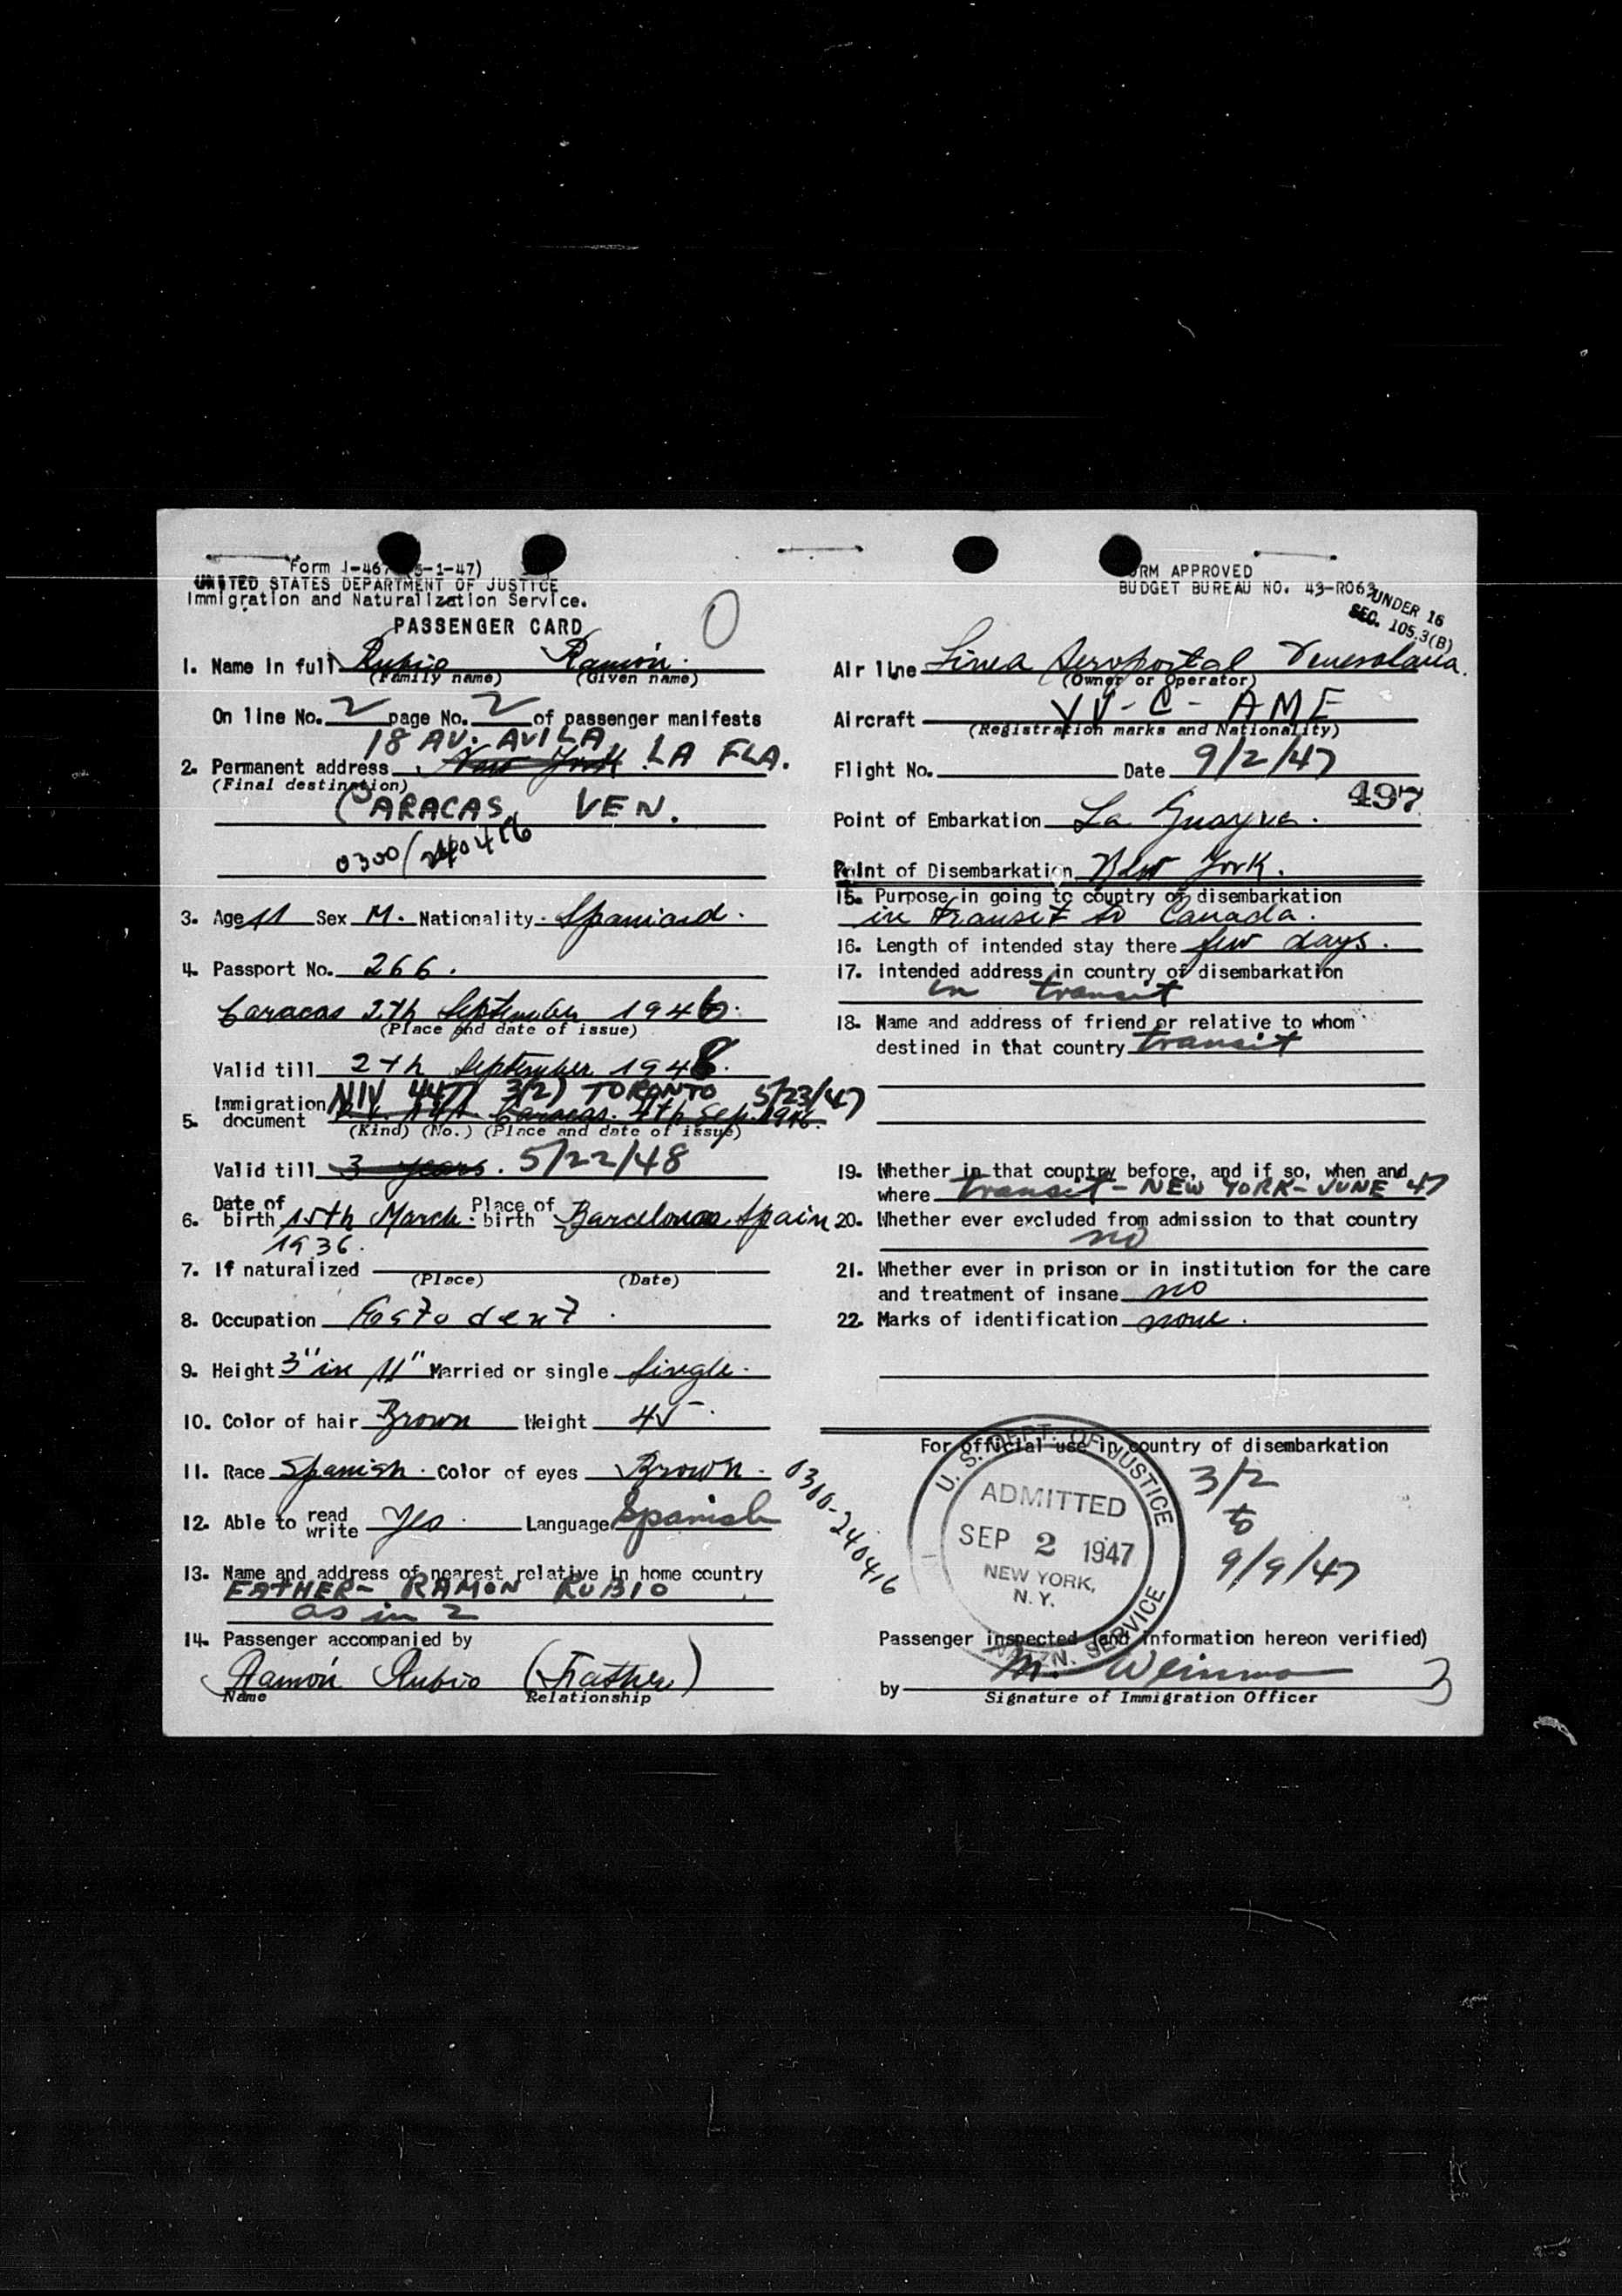 Form I-467 5-1-47)
UNITED STATES DEPARTMENT OF JUSTICE
Immigration and Naturalization Service.
PASSENGER CARD
0
1. Name in full Rubio Ramón.
(Family name) (Given name)
On line No. 2 page No. 2 of passenger manifests
18 AV. AVILA
2. Permanent address New York LA FLA.
(Final destination)
CARACAS, VEN.
0300/240416
3. Age 11 Sex M. Nationality Spaniard.
4. Passport No. 266.
Caracas 2th September 1946.
(Place and date of issue)
Valid till 2th September 1948.
NIV 3(2) TORONTO 5/23/47
5. Immigration document Caracas. 4th Sep. 1946.
(Kind) (No.) (Place and date of issue)
Valid till 3 years. 5/22/48
6. Date of birth 15th March. Place of birth Barcelona Spain
1936.
7. If naturalized
(Place) (Date)
8. Occupation Estodent.
9. Height 3" in 11" Married or single Single.
10. Color of hair Brown Weight 45.
11. Race Spanish. Color of eyes Brown.
12. Able to read write Yes. Language Spanish
13. Name and address of nearest relative in home country
FATHER- RAMON RUBIO
as in 2
14. Passenger accompanied by
Ramón Rubio (Father)
Name Relationship
FORM APPROVED
BUDGET BUREAU NO. 43-R063
UNDER 16
SEC. 105.3(B)
Air line Linea Aeropostal Venesolana.
(Owner or Operator)
Aircraft YV-C-AME
(Registration marks and Nationality)
Flight No. Date 9/2/47
497
Point of Embarkation La Guayra.
Point of Disembarkation New York.
15. Purpose in going to country of disembarkation
in transit to Canada.
16. Length of intended stay there few days.
17. Intended address in country of disembarkation
in transit
18. Name and address of friend or relative to whom
destined in that country transit
19. Whether in that country before, and if so, when and
where transit - NEW YORK - JUNE 47
20. Whether ever excluded from admission to that country
no
21. Whether ever in prison or in institution for the care
and treatment of insane no
22. Marks of identification none.
For official use in country of disembarkation
U. S. DEPT. OF JUSTICE
ADMITTED
SEP 2 1947
NEW YORK,
N. Y.
NATZN. SERVICE
3/2
to
9/9/47
0300-240416
Passenger inspected (and information hereon verified)
by M. Weinman 3
Signature of Immigration Officer